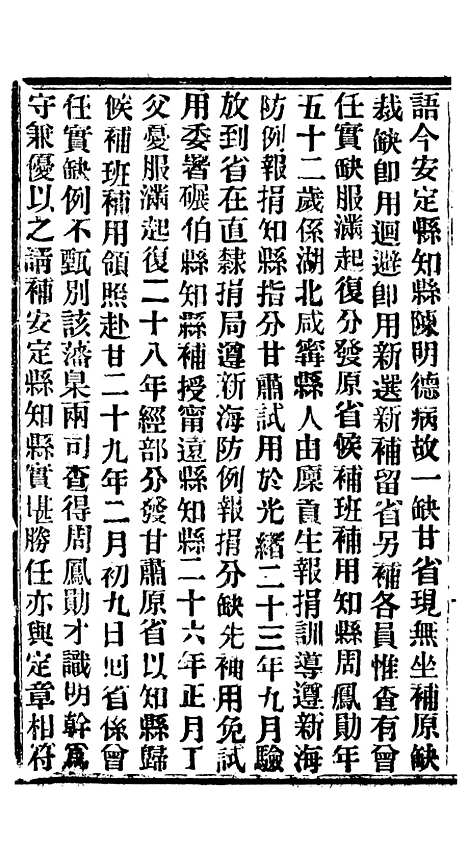 語今安定縣知縣陳明德病故一缺甘省現無坐補原缺
裁缺卽用迴避卽用新選新補留省另補各員惟查有曾
任實缺服滿起復分發原省候補班補用知縣周鳳勛年
五十二歲係湖北咸寧縣人由廪貢生報捐訓導遵新海
防例報捐知縣指分甘肅試用於光緒二十三年九月驗
放到省在直隸捐局遵新海防例報捐分缺先補用免試
用委署碾伯縣知縣補授甯遠縣知縣二十六年正月丁
父憂服滿起復二十八年經部分發甘肅原省以知縣歸
候補班補用領照赴甘二十九年二月初九日囘省係曾
任實缺例不甄別該藩臬兩司查得周鳳勛才識明幹爲
守兼優以之請補安定縣知縣實堪勝任亦與定章相符